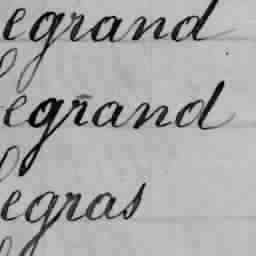 egrand
egrand
egras